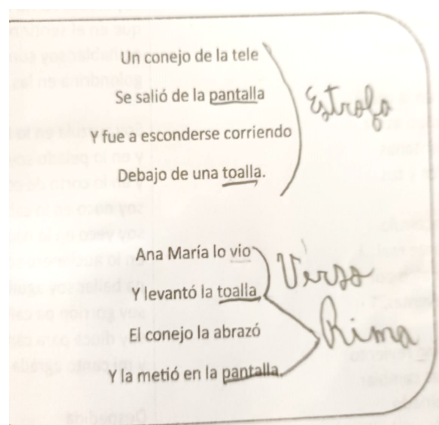 Un conejo de la tele
Se salió de la pantalla
Y fue a esconderse corriendo
Debajo de una toalla.
Estrofa
Ana María lo vio
Y levantó la toalla
El conejo la abrazó
Y la metió en la pantalla.
Verso
Rima